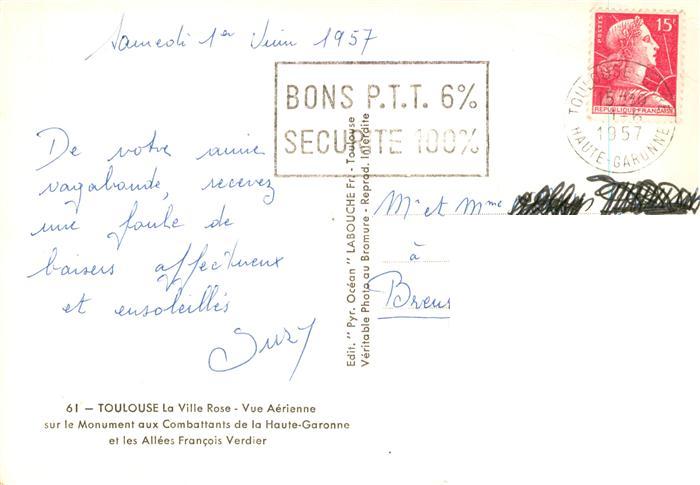 Samedi 1er Juin 1957
BONS P.T.T. 6%
SECURITE 100%
POSTES
15F
REPUBLIQUE FRANÇAISE
TOULOUSE
15H
1-6
1957
HAUTE-GARONNE
De votre amie
vagabonde, recevez
une foule de
baisers affectueux
et ensoleillés
Suzy
Mr et Mme
à
Breus
Edit. "Pyr. Océan" LABOUCHE Fr. - Toulouse
Véritable Photo au Bromure - Reprod. Interdite
61 — TOULOUSE La Ville Rose - Vue Aérienne
sur le Monument aux Combattants de la Haute-Garonne
et les Allées François Verdier